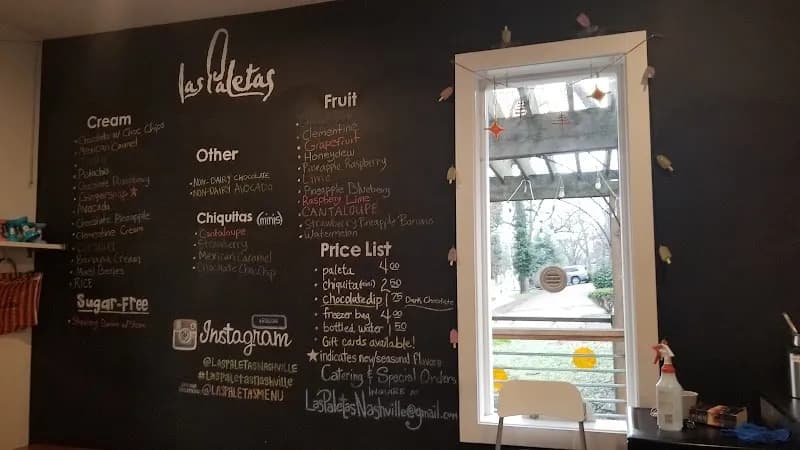 Las Paletas
Cream
• Chocolate w/ Choc Chips
• Mexican Caramel
• Pistachio
• Chocolate Raspberry
• Gingersnap ★
• Avocado
• Chocolate Pineapple
• Clementine Cream
• Banana Cream
• Mixed Berries
• RICE
Sugar-Free
• Strawberry
Other
• NON-DAIRY CHOCOLATE
• NON-DAIRY AVOCADO
Chiquitas (minis)
• Cantaloupe
• Strawberry
• Mexican Caramel
• Chocolate Choc Chip
Fruit
• Clementine
• Grapefruit
• Honeydew
• Pineapple Raspberry
• Lime
• Pineapple Blueberry
• Raspberry Lime
• CANTALOUPE
• Strawberry Pineapple Banana
• Watermelon
Price List
• paleta 4.00
• chiquita (mini) 2.50
• chocolate dip 1.25 Dark Chocolate
• freezer bag 4.00
• bottled water 1.50
• Gift cards available!
★ indicates new/seasonal flavors
Catering & Special Orders
INQUIRE AT
LasPaletasNashville@gmail.com
Instagram
@LASPALETASNASHVILLE
#Laspaletasnashville
@LASPALETASMENU